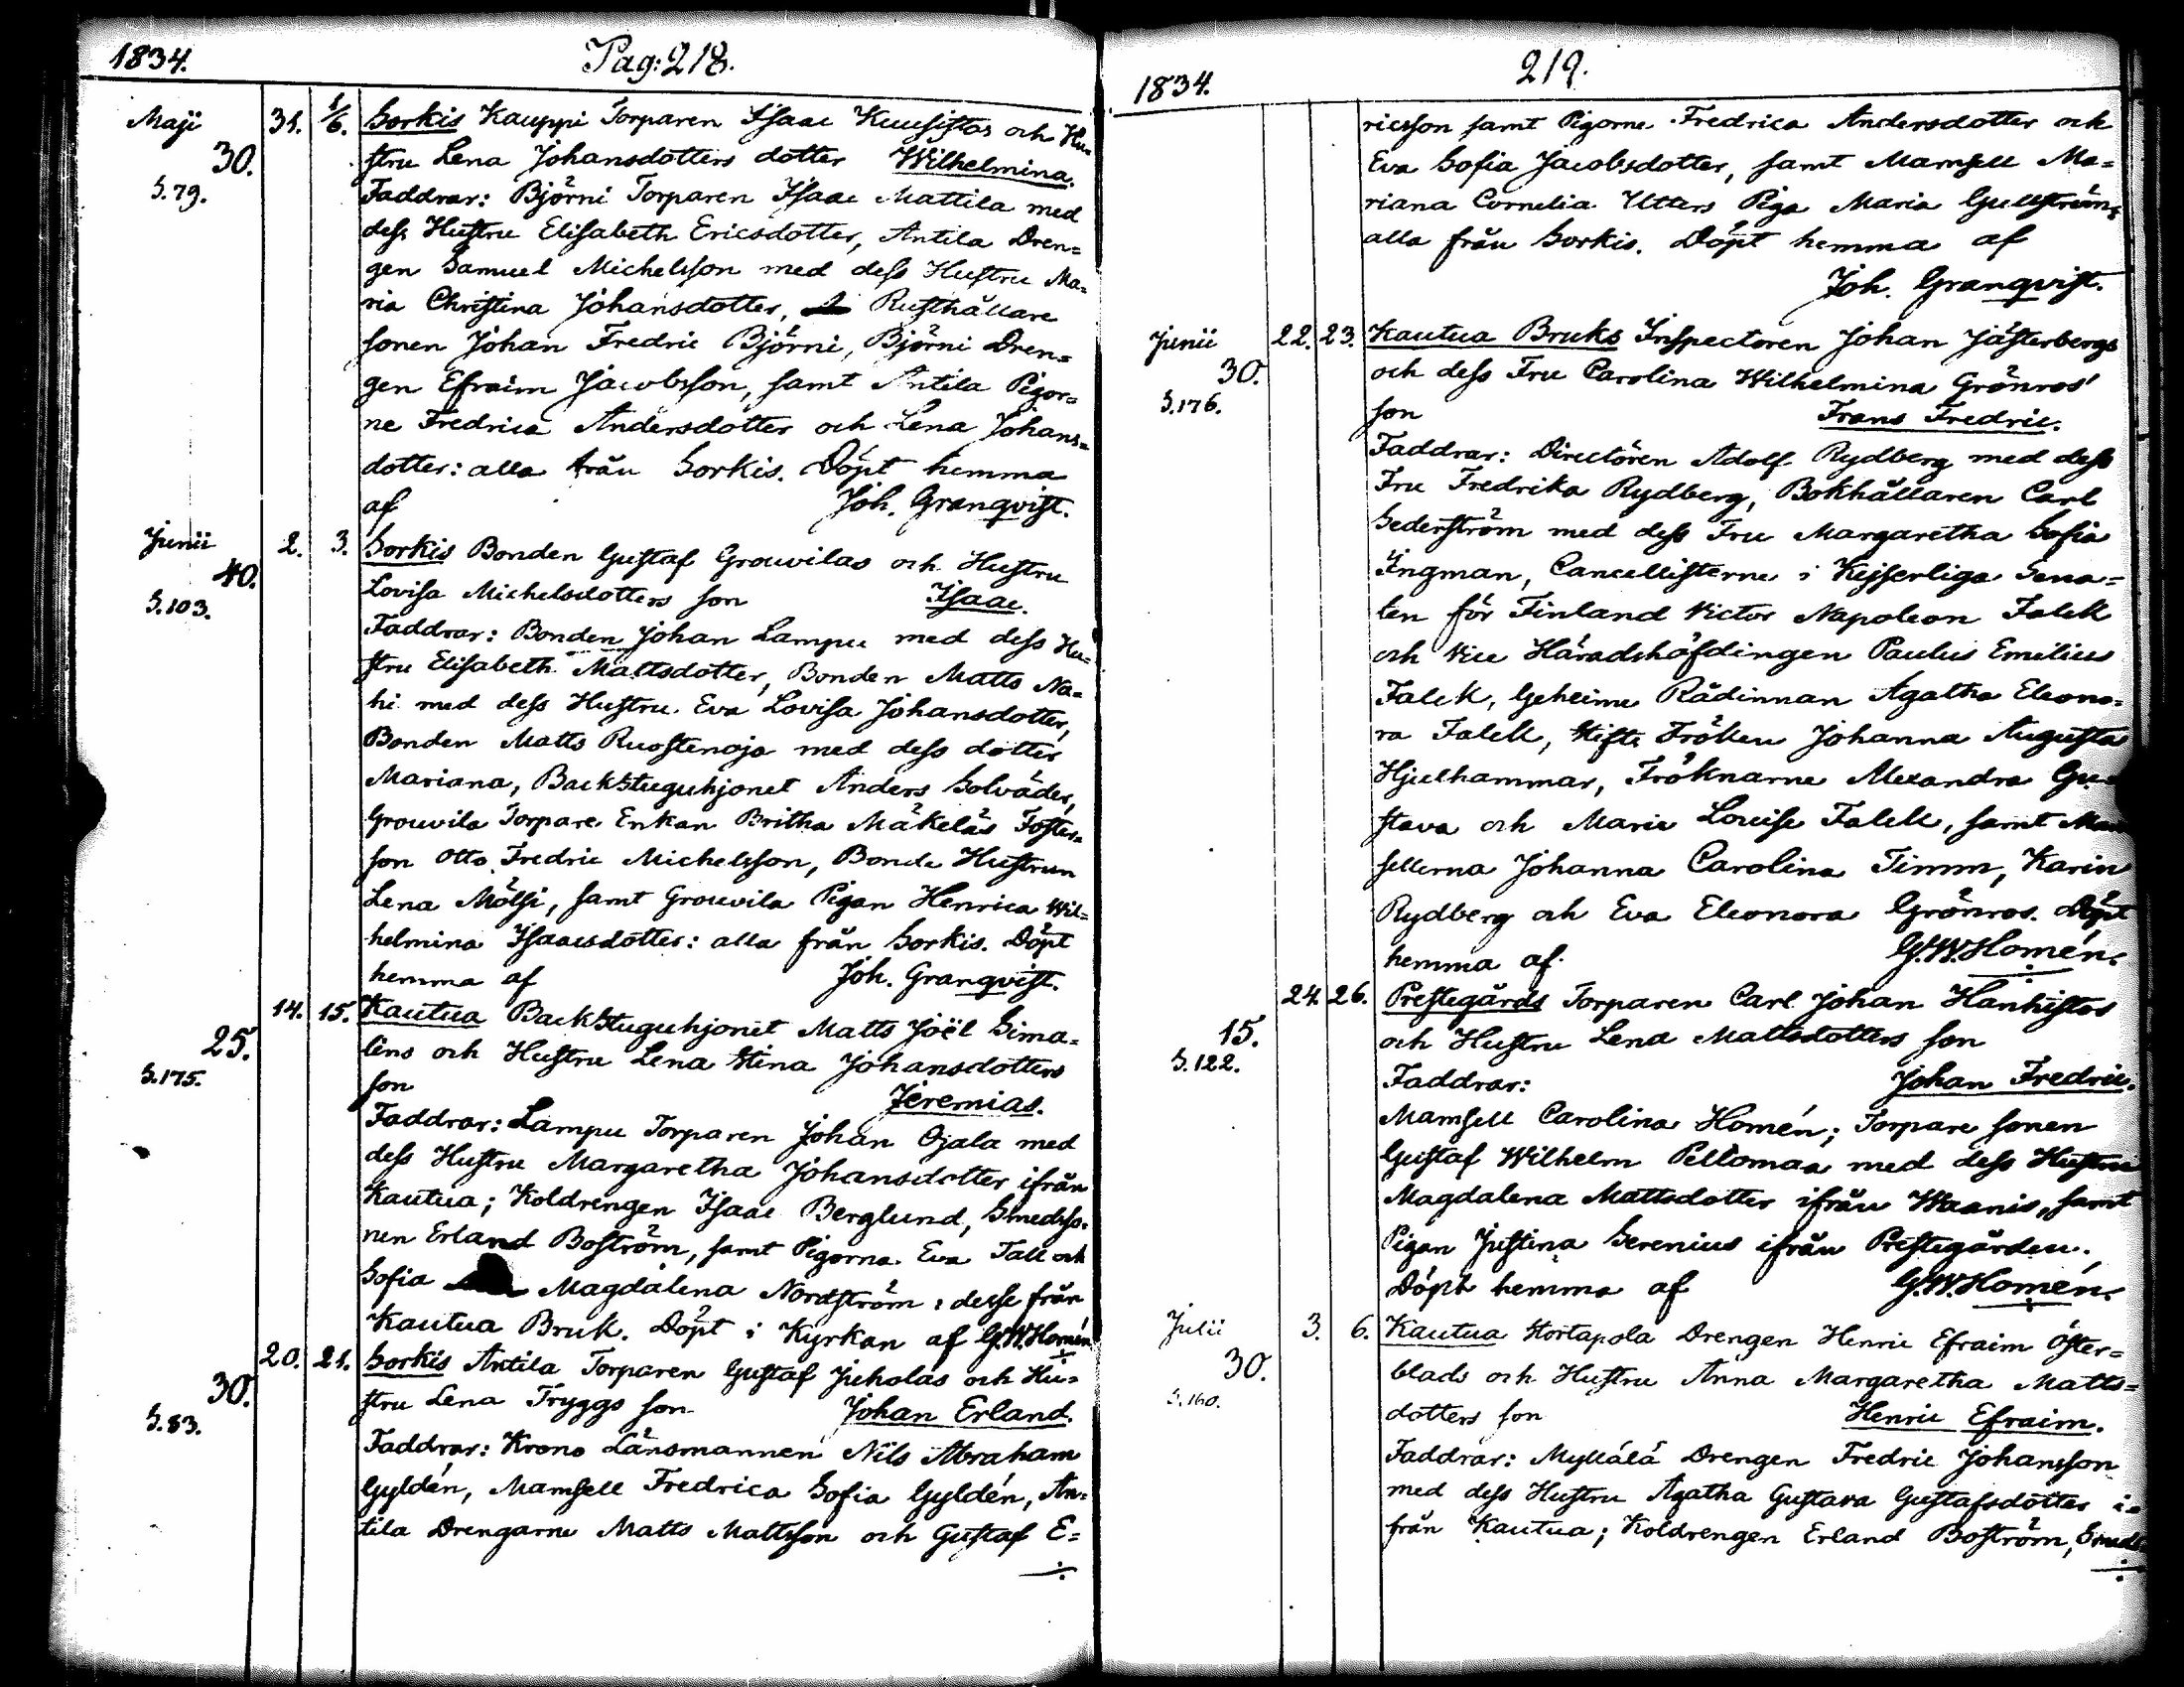 1834.
Pag: 218.
Maji 31. 1/6. Sorkis Kauppi Torparen Isaac Kuusistos och Hu-
30. stru Lena Johansdotters dotter Wilhelmina.
S. 79. Faddrar: Björni Torparen Isaac Mattila med
dess Hustru Elisabeth Ericsdotter, Antila Dren=
gen Samuel Michelsson med dess Hustru Ma=
ria Christina Johansdotter, Rusthållare
sonen Johan Fredric Björni, Björni Dren=
gen Efraim Jacobsson, samt Antila Pigor=
ne Fredrica Andersdotter och Lena Johans=
dotter: alla från Sorkis. Döpt hemma
af Joh. Granqvist.
Junii 2. 3. Sorkis Bonden Gustaf Grouvilas och Hustru
40. Lovisa Michelsdotters son Isaac.
S. 103. Faddrar: Bonden Johan Lampu med dess Hu=
stru Elisabeth Mattsdotter, Bonden Matts Na=
hi med dess Hustru Eva Lovisa Johansdotter,
Bonden Matts Ruostenoja med dess dotter
Mariana, Backstuguhjonet Anders Solväder,
Grouvila Torpare Enkan Britha Mäkeläs Foster=
son Otto Fredric Michelsson, Bonde Hustrun
Lena Mölsi, samt Grouvila Pigan Henrica Wil=
helmina Isaacsdotter: alla från Sorkis. Döpt
hemma af Joh. Granqvist.
14. 15. Kautua Backstuguhjonet Matts Joël Sima=
25. lins och Hustru Lena Stina Johansdotters
S. 175. son Jeremias.
Faddrar: Lampu Torparen Johan Ojala med
dess Hustru Margaretha Johansdotter ifrån
Kautua; Koldrengen Isaac Berglund, Smedsso=
nen Erland Boström, samt Pigorna Eva Tall och
Sofia Magdalena Nordström: desse från
Kautua Bruk. Döpt i Kyrkan af G.W.Homén.
20. 21. Sorkis Antila Torparen Gustaf Juholas och Hu=
30. stru Lena Tryggs son Johan Erland.
S. 83. Faddrar: Krono Länsmannen Nils Abraham
Gyldén, Mamsell Fredrica Sofia Gyldén, An=
tila Drengarne Matts Mattsson och Gustaf E=
1834.
219.
ricsson samt Pigorne Fredrica Andersdotter och
Eva Sofia Jacobsdotter, samt Mamsell Ma=
riana Cornelia Utters Piga Maria Gullström;
alla från Sorkis. Döpt hemma af
Joh. Granqvist.
Junii 22. 23. Kautua Bruks Inspectoren Johan Jästerbergs
30. och dess Fru Carolina Wilhelmina Grönros'
S. 176. son Frans Fredric.
Faddrar: Directören Adolf Rydberg med dess
Fru Fredrika Rydberg, Bokhållaren Carl
Sederström med dess Fru Margaretha Sofia
Ingman, Cancellisterne i Kejserliga Sena=
ten för Finland Victor Napoleon Falck
och Vice Häradshöfdingen Paulus Emilius
Falck, Geheime Rådinnan Agatha Eleono=
ra Falck, Stifts Fröken Johanna Augusta
Hjelhammar, Fröknarne Alexandra Gu=
stava och Marie Louise Falck, samt Mam
sellerna Johanna Carolina Timm, Karin
Rydberg och Eva Eleonora Grönros. Döpt
hemma af G.W.Homén.
24. 26. Prestegårds Torparen Carl Johan Hanhistos
15. och Hustru Lena Mattsdotters son
S. 122. Faddrar: Johan Fredric.
Mamsell Carolina Homén; Torpare sonen
Gustaf Wilhelm Peltomaa med dess Hustru
Magdalena Mattsdotter ifrån Waanis, samt
Pigan Justina Serenius ifrån Prestegården.
Döpt hemma af G.W.Homén.
Julii 3. 6. Kautua Stortapola Drengen Henric Efraim Öster=
30. blads och Hustru Anna Margaretha Matts=
S. 160. dotters son Henric Efraim.
Faddrar: Myllälä Drengen Fredric Johansson
med dess Hustru Agatha Gustava Gustafsdotter i=
från Kautua; Koldrengen Erland Boström, Smeds